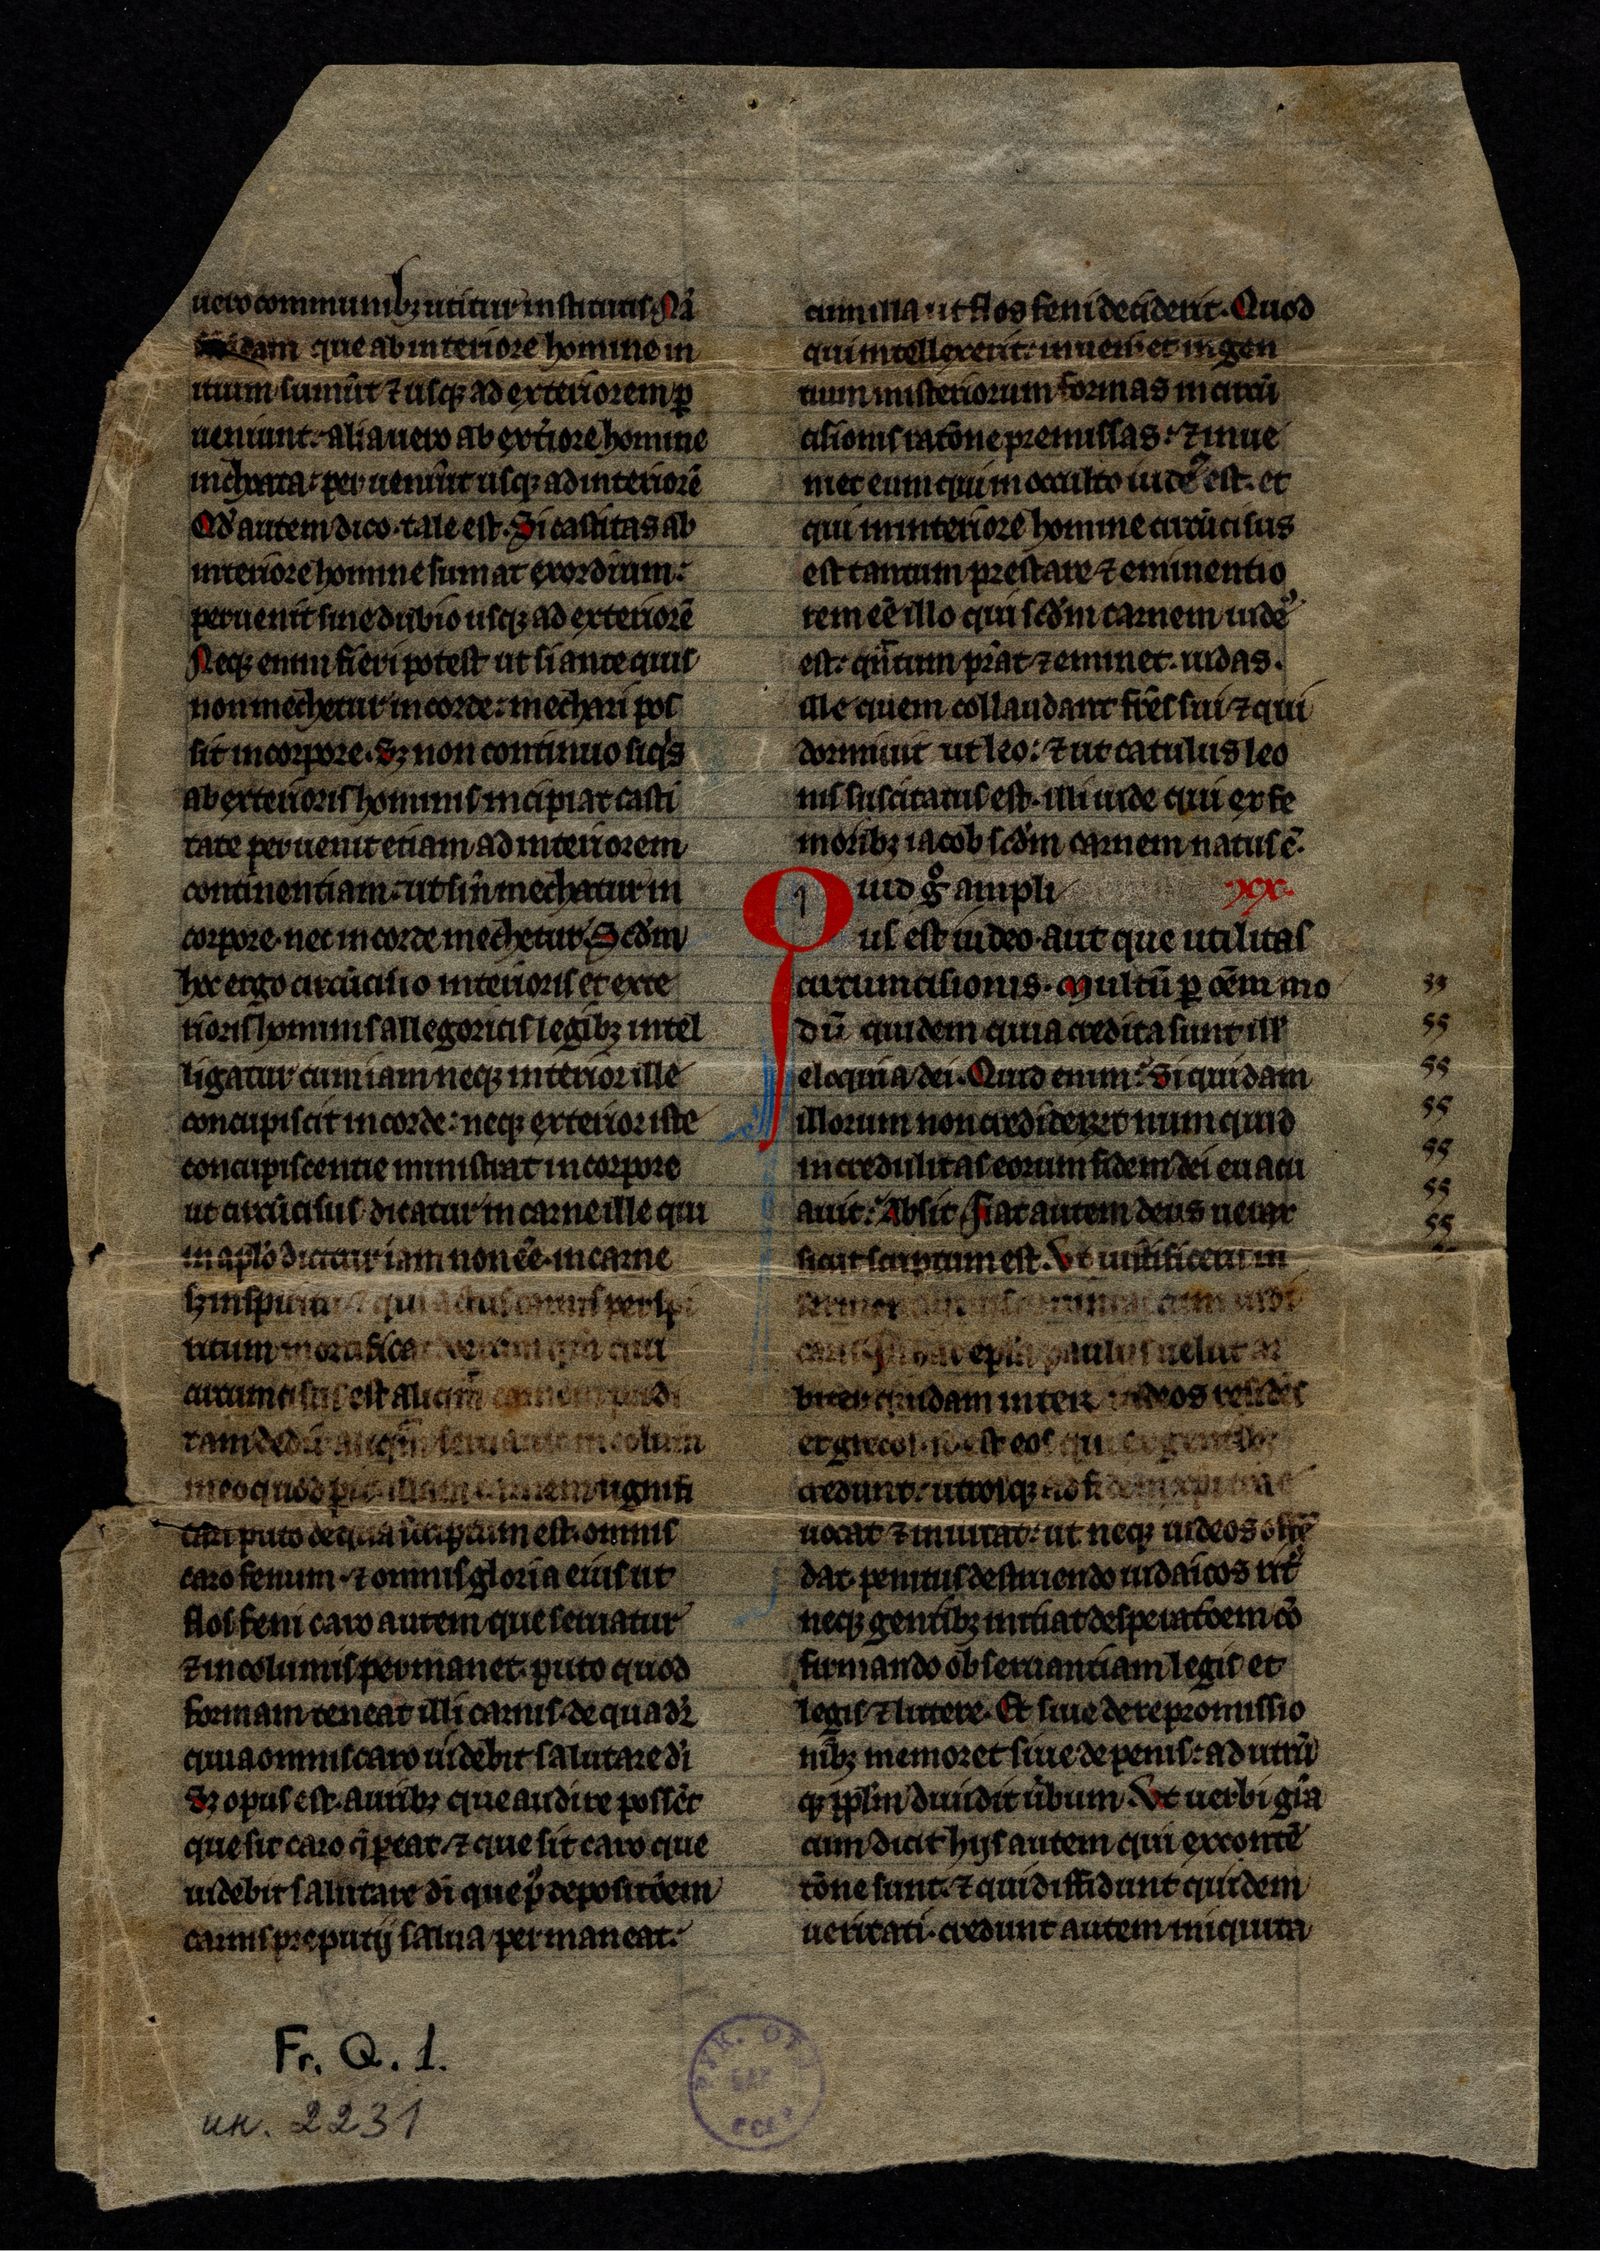 uero communibꝫ utitur institutis. Nā
dam que ab interiore homine in
itium sumūt ⁊ usqꝫ ad exteriorem ꝑ
ueniunt. alia uero ab exteriore homine
inchoata. perueniūt usqꝫ ad interiorē
Qd' autem dico. tale est. Si castitas ab
interiore homine sumat exordium.
peruenit sine dubio usqꝫ ad exteriorē
Neqꝫ enim fieri potest ut si ante quis
non mechetur in corde. mechari pos
sit in corpore. Sꝫ non continuo siq's
ab exterioris hominis incipiat casti
tate perueniet etiam ad interiorem
continentiam. ut si n̄ mechatur in
corpore. nec in corde mechetur. Scd'm
hec ergo circūcisio interioris et exte
rioris hominis allegoricis legibꝫ intel
ligatur cum iam neqꝫ interior ille
concupiscit in corde. neqꝫ exterior iste
concupiscentie ministrat in corpore
ut circūcisus dicatur in carne ille qui
in aplo dicitur iam non eē. in carne
sꝫ in spiritu ⁊ qui actus carnis per spi
ritum mortificat. uerum quia qui
circumcisus est aliquam carnem perdi
meo quod illam carnem signifi
cari puto de qua scriptum est. omnis
caro fenum. ⁊ omnis gloria eius ut
flos feni caro autem que seruatur
⁊ incolumis permanet. puto quod
formam teneat illi carnis. de qua dr̄
quia omnis caro uidebit salutare di
Sꝫ opus est. auribꝫ que audire possēt
que sit caro q̄ pereat. ⁊ que sit caro que
uidebit salutare di que ꝑ depositōem
carnis preputij salua permaneat.
cum illa ut flos feni deciderit. Quod
qui intellexerit. inueniet ingen
tium misteriorum formas in circū
cisionis ratōne premissas. ⁊ inue
niet eum qui in occulto iudeꝰ est. et
qui in interiore homine circūcisus
est tantum prestare ⁊ eminentio
rem eē illo qui scd'm carnem iudeꝰ
est. quātum p̄stat ⁊ eminet. iudas.
ille quem collaudant fr̄es sui ⁊ qui
dormiuit ut leo. ⁊ ut catulus leo
nis suscitatus est. illi iude qui ex fe
moribꝫ iacob scd'm carnem natus ē.
Quid gͦ ampli xxx.
us est iudeo. aut que utilitas
circumcisionis. Multū ꝑ oēm mo
dū quidem quia credita sunt ill'
eloquia dei. Quid enim. Si quidam
illorum non crediderunt numquid
incredulitas eorum fidem dei euacu
auit. Absit. Fiat autem deus uerax
sicut scriptum est. Vt iustificeris in
caris. In hac epla paulus uelut ar
biter quidam inter iudeos residēs
et grecos. id est eos qui ex gentibꝫ
credunt. utrosqꝫ ad fidem xpi
uocat ⁊ inuitat. ut neqꝫ iudeos offē
dat penitus destruendo iudaicos rit'
neqꝫ gentibꝫ initiat desperatōem cō
firmando obseruantiam legis et
legis ⁊ littere. Et siue de repromissio
nibꝫ memoret siue de penis. ad utrū
qꝫ ppl'm diuidit ūbum. Vt uerbi gr̄a
cum dicit hijs autem qui ex contē
tōne sunt. ⁊ qui diffidunt quidem
ueritati. credunt autem iniquita
Fr. Q. 1.
ин. 2231